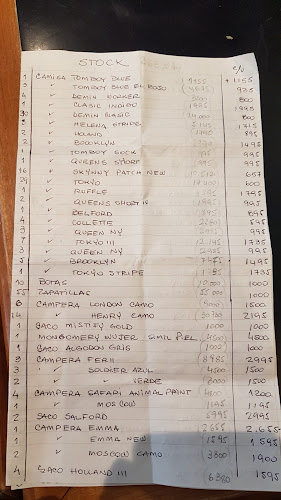 STOCK
c/u
1 CAMISA TOMBOY BLUE (1155 +1155
✓ TOMBOY BLUE EL BOSO 935
4 ✓ DEMIN DORKER 800
✓ CLASIC INDIGO 1995
30 ✓ DEMIN CLASIC 800
✓ HELENA STRIPE 1715
✓ HOLAND 895
2 ✓ BROOKLYN 1495
1 ✓ TOMBOY ROCK 995 995
1 ✓ QUEENS SHORT 995 995
16 ✓ SKYNNY PATCH NEW 657
24 ✓ TOKYO 14400 600
1 ✓ RUFFLE 1795
2 ✓ QUEENS SHORT IV 905
1 ✓ BELFORD 895
4 ✓ COLLETTE 595
9 ✓ QUEEN NY 995
7 ✓ TOKYO III 12145 1735
3 ✓ QUEEN NY 995
5 ✓ BROOKLYN 7475 1495
1 ✓ TOKYO STRIPE 1735
10 BOTAS (10.000 1000
55 ZAPATILLAS 55.000 1000
6 CAMPERA LONDON CAMO 1500
14 ✓ HENRY CAMO (30730 2195
1 SACO MISTIFY GOLD 1000 1000
1 MONTGOMERY MUJER SIMIL PIEL 4500 4500
1 SACO ALGODON GRIS 1000 1000
3 CAMPERA FERN (8985 2995
3 ✓ SOLDIER AZUL 4500 1500
2 ✓ ✓ VERDE 3000 1500
4 CAMPERA SAFARI ANIMAL PRINT 4800 1200
1 ✓ MOSCOW 1195 1195
2 SACO SALFORD 2995
1 CAMPERA EMMA 2655 2.655
1 ✓ EMMA NEW 1595 1.595
2 ✓ MOSCOW CAMO 3800 1900
4 SACO HOLLAND III 6380 1595